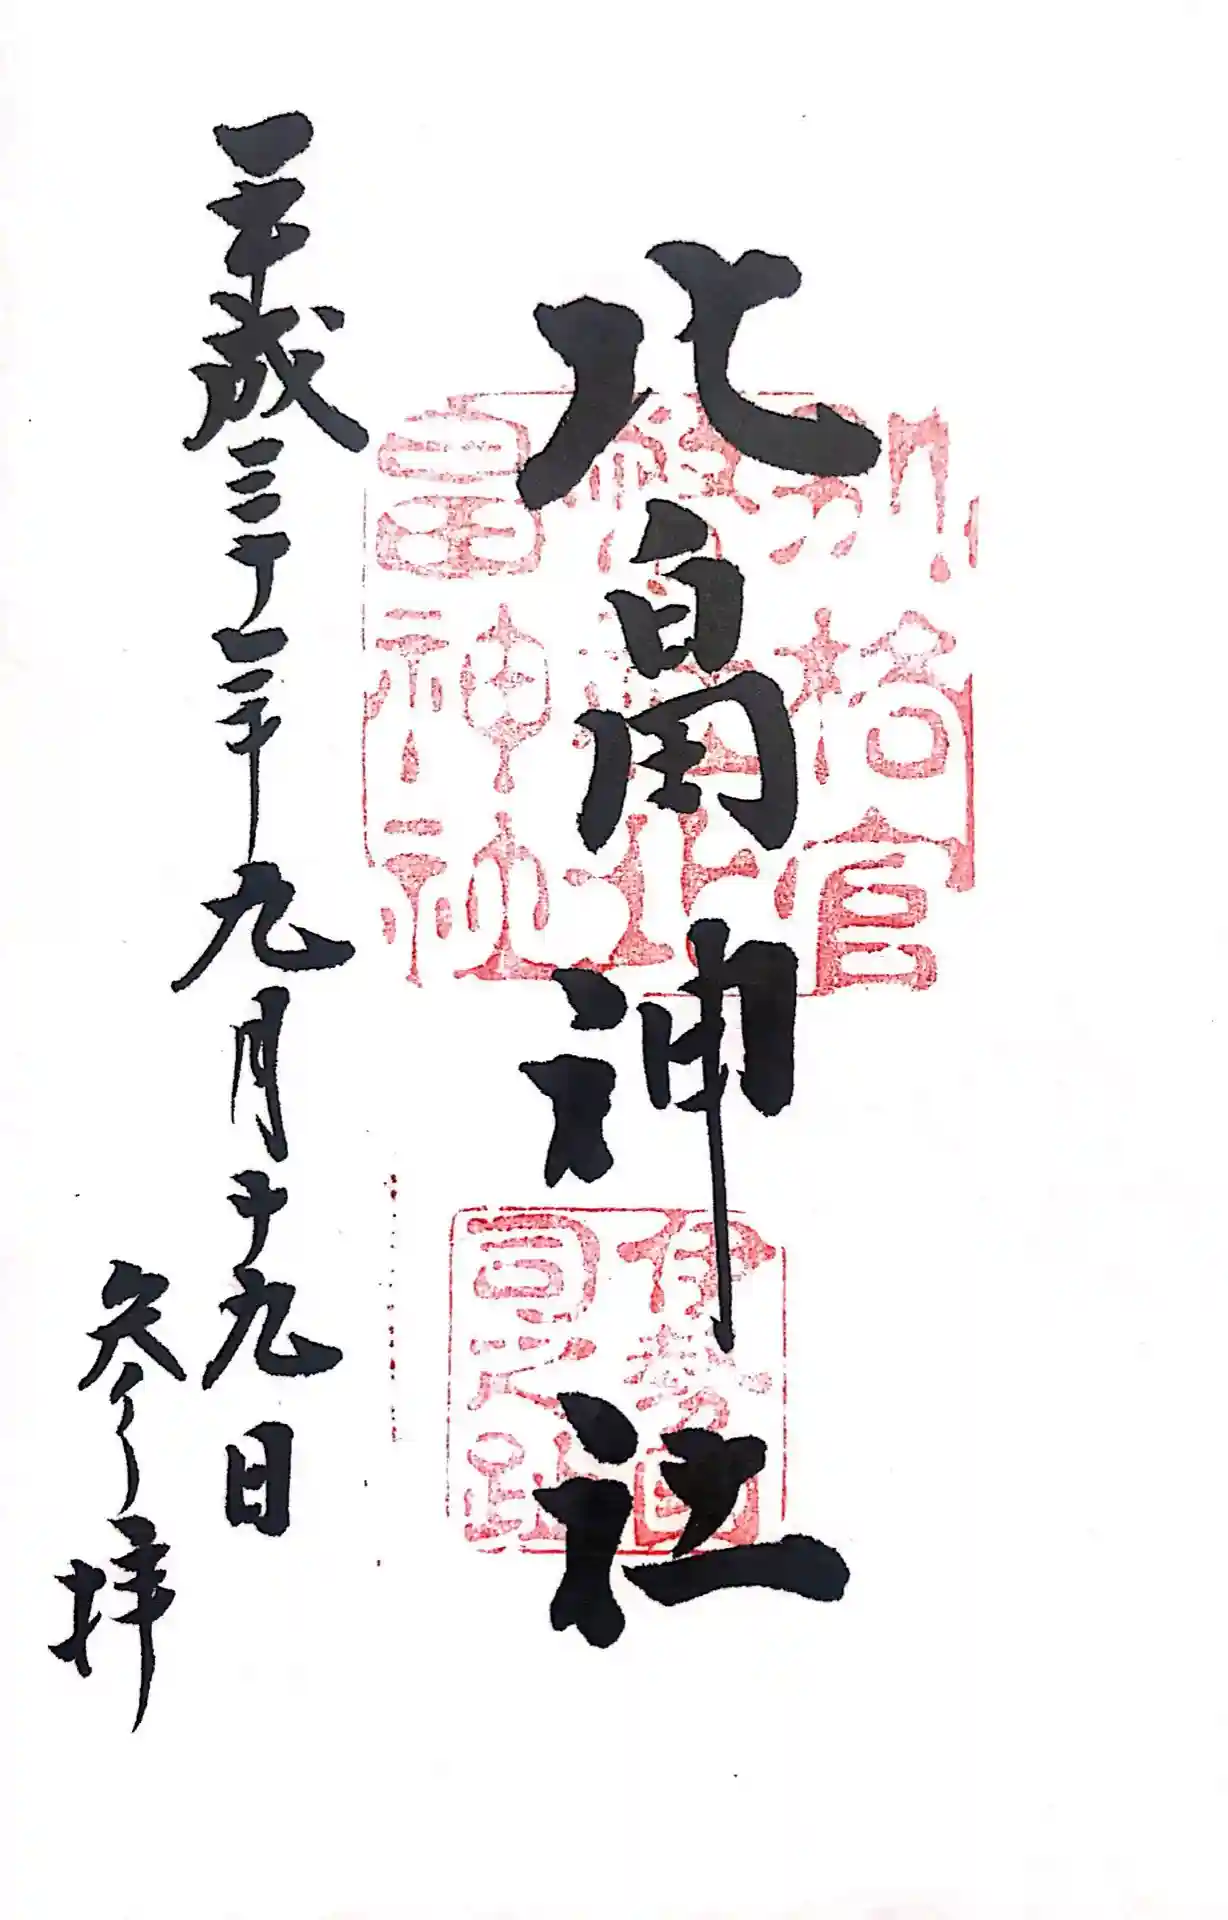 別格官幣社北畠神社
北畠神社
伊勢國司之跡
平成三十年九月十九日
参拝